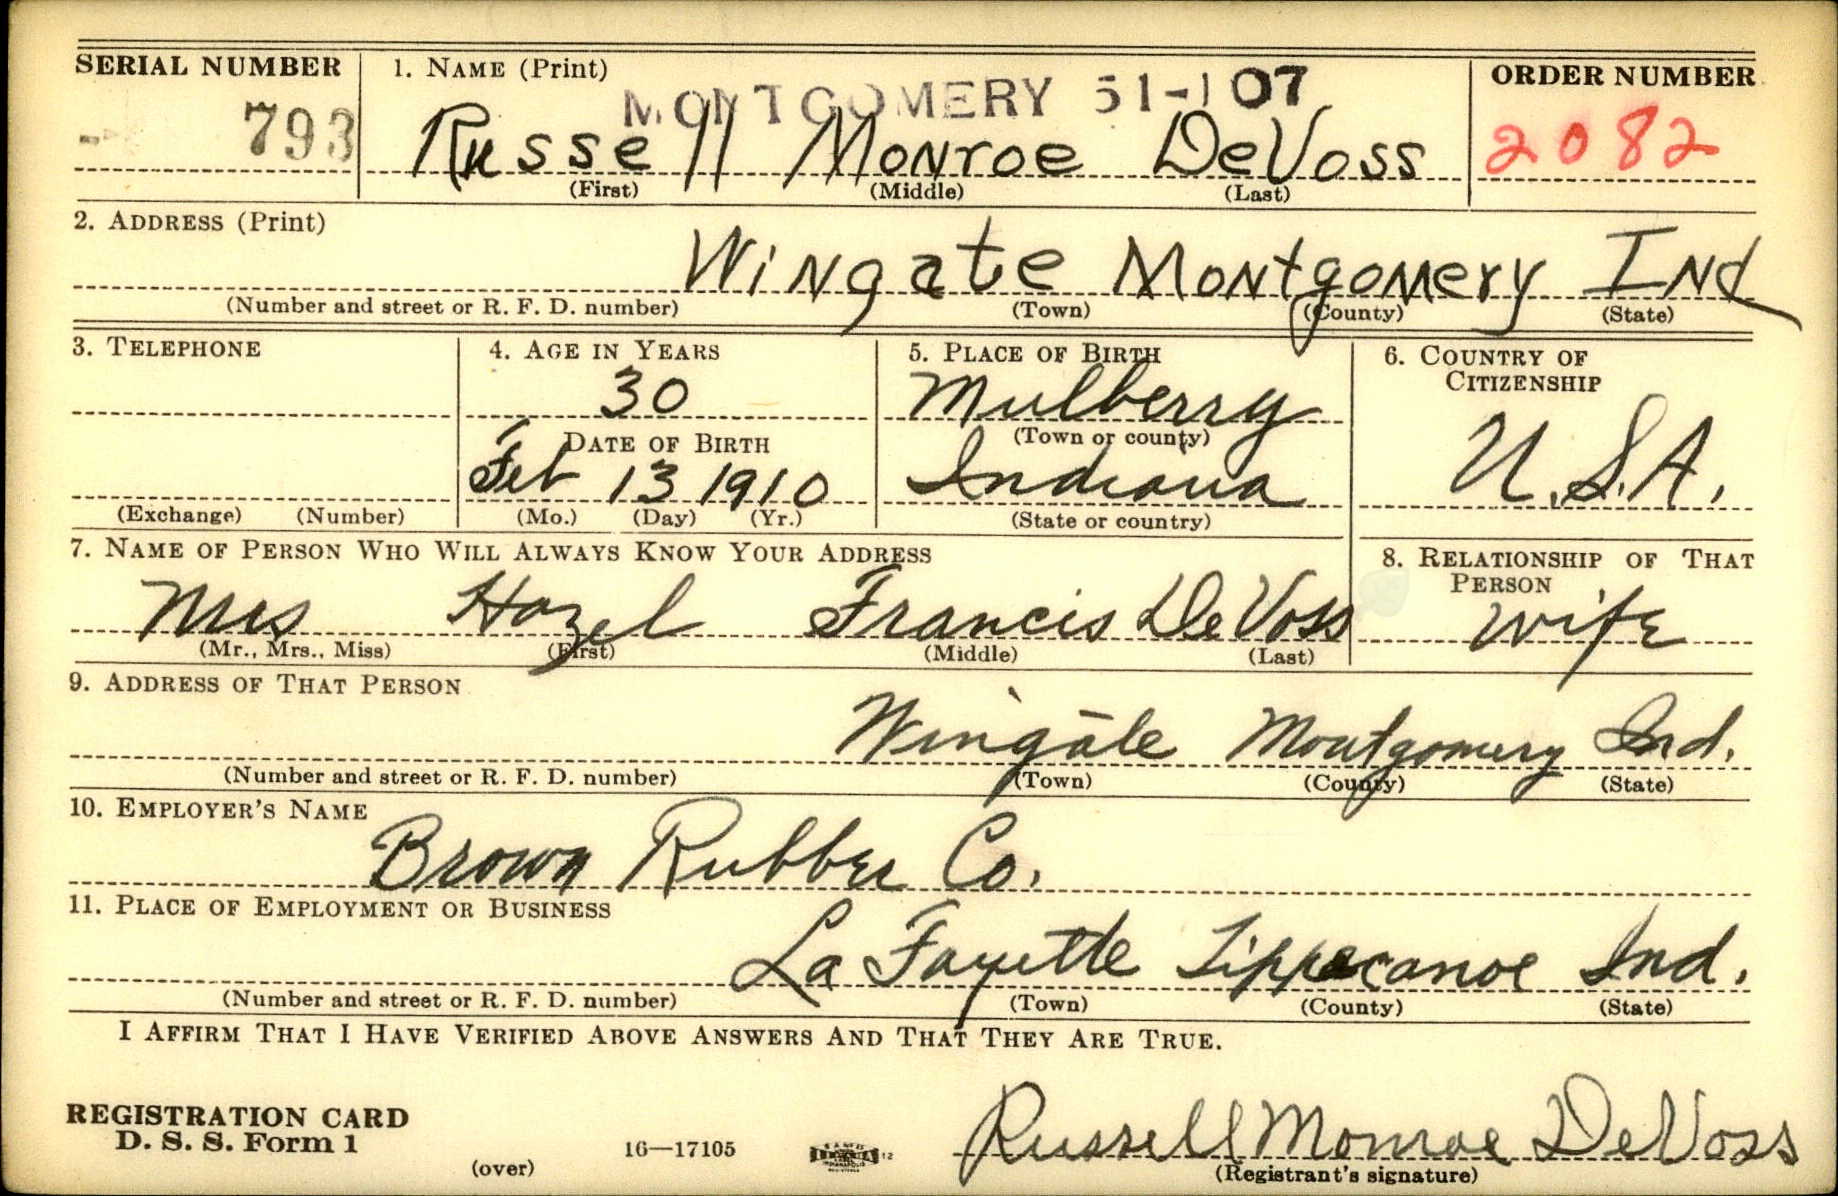 SERIAL NUMBER 1. NAME (Print) ORDER NUMBER
MONTGOMERY 51-107
793 Russell Monroe DeVoss 2082
(First) (Middle) (Last)
2. ADDRESS (Print)
Wingate Montgomery Ind
(Number and street or R. F. D. number) (Town) (County) (State)
3. TELEPHONE 4. AGE IN YEARS 5. PLACE OF BIRTH 6. COUNTRY OF CITIZENSHIP
30 Mulberry
DATE OF BIRTH (Town or county)
Feb 13 1910 Indiana U.S.A.
(Exchange) (Number) (Mo.) (Day) (Yr.) (State or country)
7. NAME OF PERSON WHO WILL ALWAYS KNOW YOUR ADDRESS 8. RELATIONSHIP OF THAT PERSON
Mrs Hazel Francis DeVoss wife
(Mr., Mrs., Miss) (First) (Middle) (Last)
9. ADDRESS OF THAT PERSON
Wingate Montgomery Ind.
(Number and street or R. F. D. number) (Town) (County) (State)
10. EMPLOYER'S NAME
Brown Rubber Co.
11. PLACE OF EMPLOYMENT OR BUSINESS
La Fayette Tippecanoe Ind.
(Number and street or R. F. D. number) (Town) (County) (State)
I AFFIRM THAT I HAVE VERIFIED ABOVE ANSWERS AND THAT THEY ARE TRUE.
REGISTRATION CARD
D. S. S. Form 1 16—17105 12 Russell Monroe DeVoss
(over) (Registrant's signature)